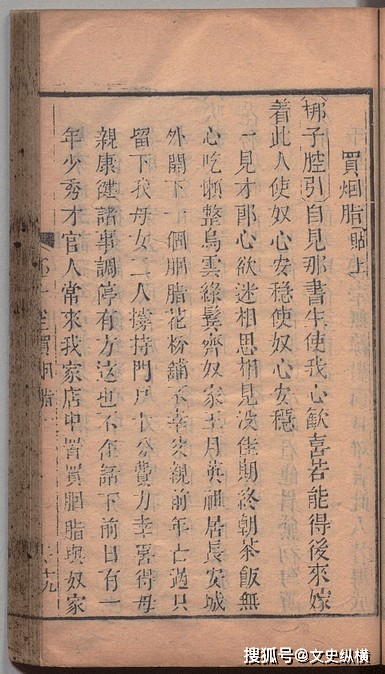 買烟脂〔貼上
〔梆子腔引〕自見那書生使我心歡喜若能得後來嫁
着此人使奴心安穩使奴心安穩
一見才郎心欲迷相思相見没佳期終朝茶飯無
心吃懶整烏雲綠鬂齊奴家王月英祖居長安城
外開下一個胭脂花粉鋪不幸父親前年亡過只
留下我母女二人撐持門戶十分費力幸喜得母
親康健諸事調停有方這也不在話下前日有一
年少秀才官人常來我家店中置買胭脂與奴家
買烟脂
搜狐号@文史纵横